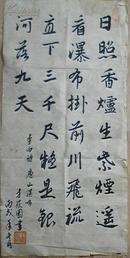 日照香爐生紫煙遥
看瀑布掛前川飛流
直下三千尺疑是銀
河落九天
李白詩 廬山瀑布